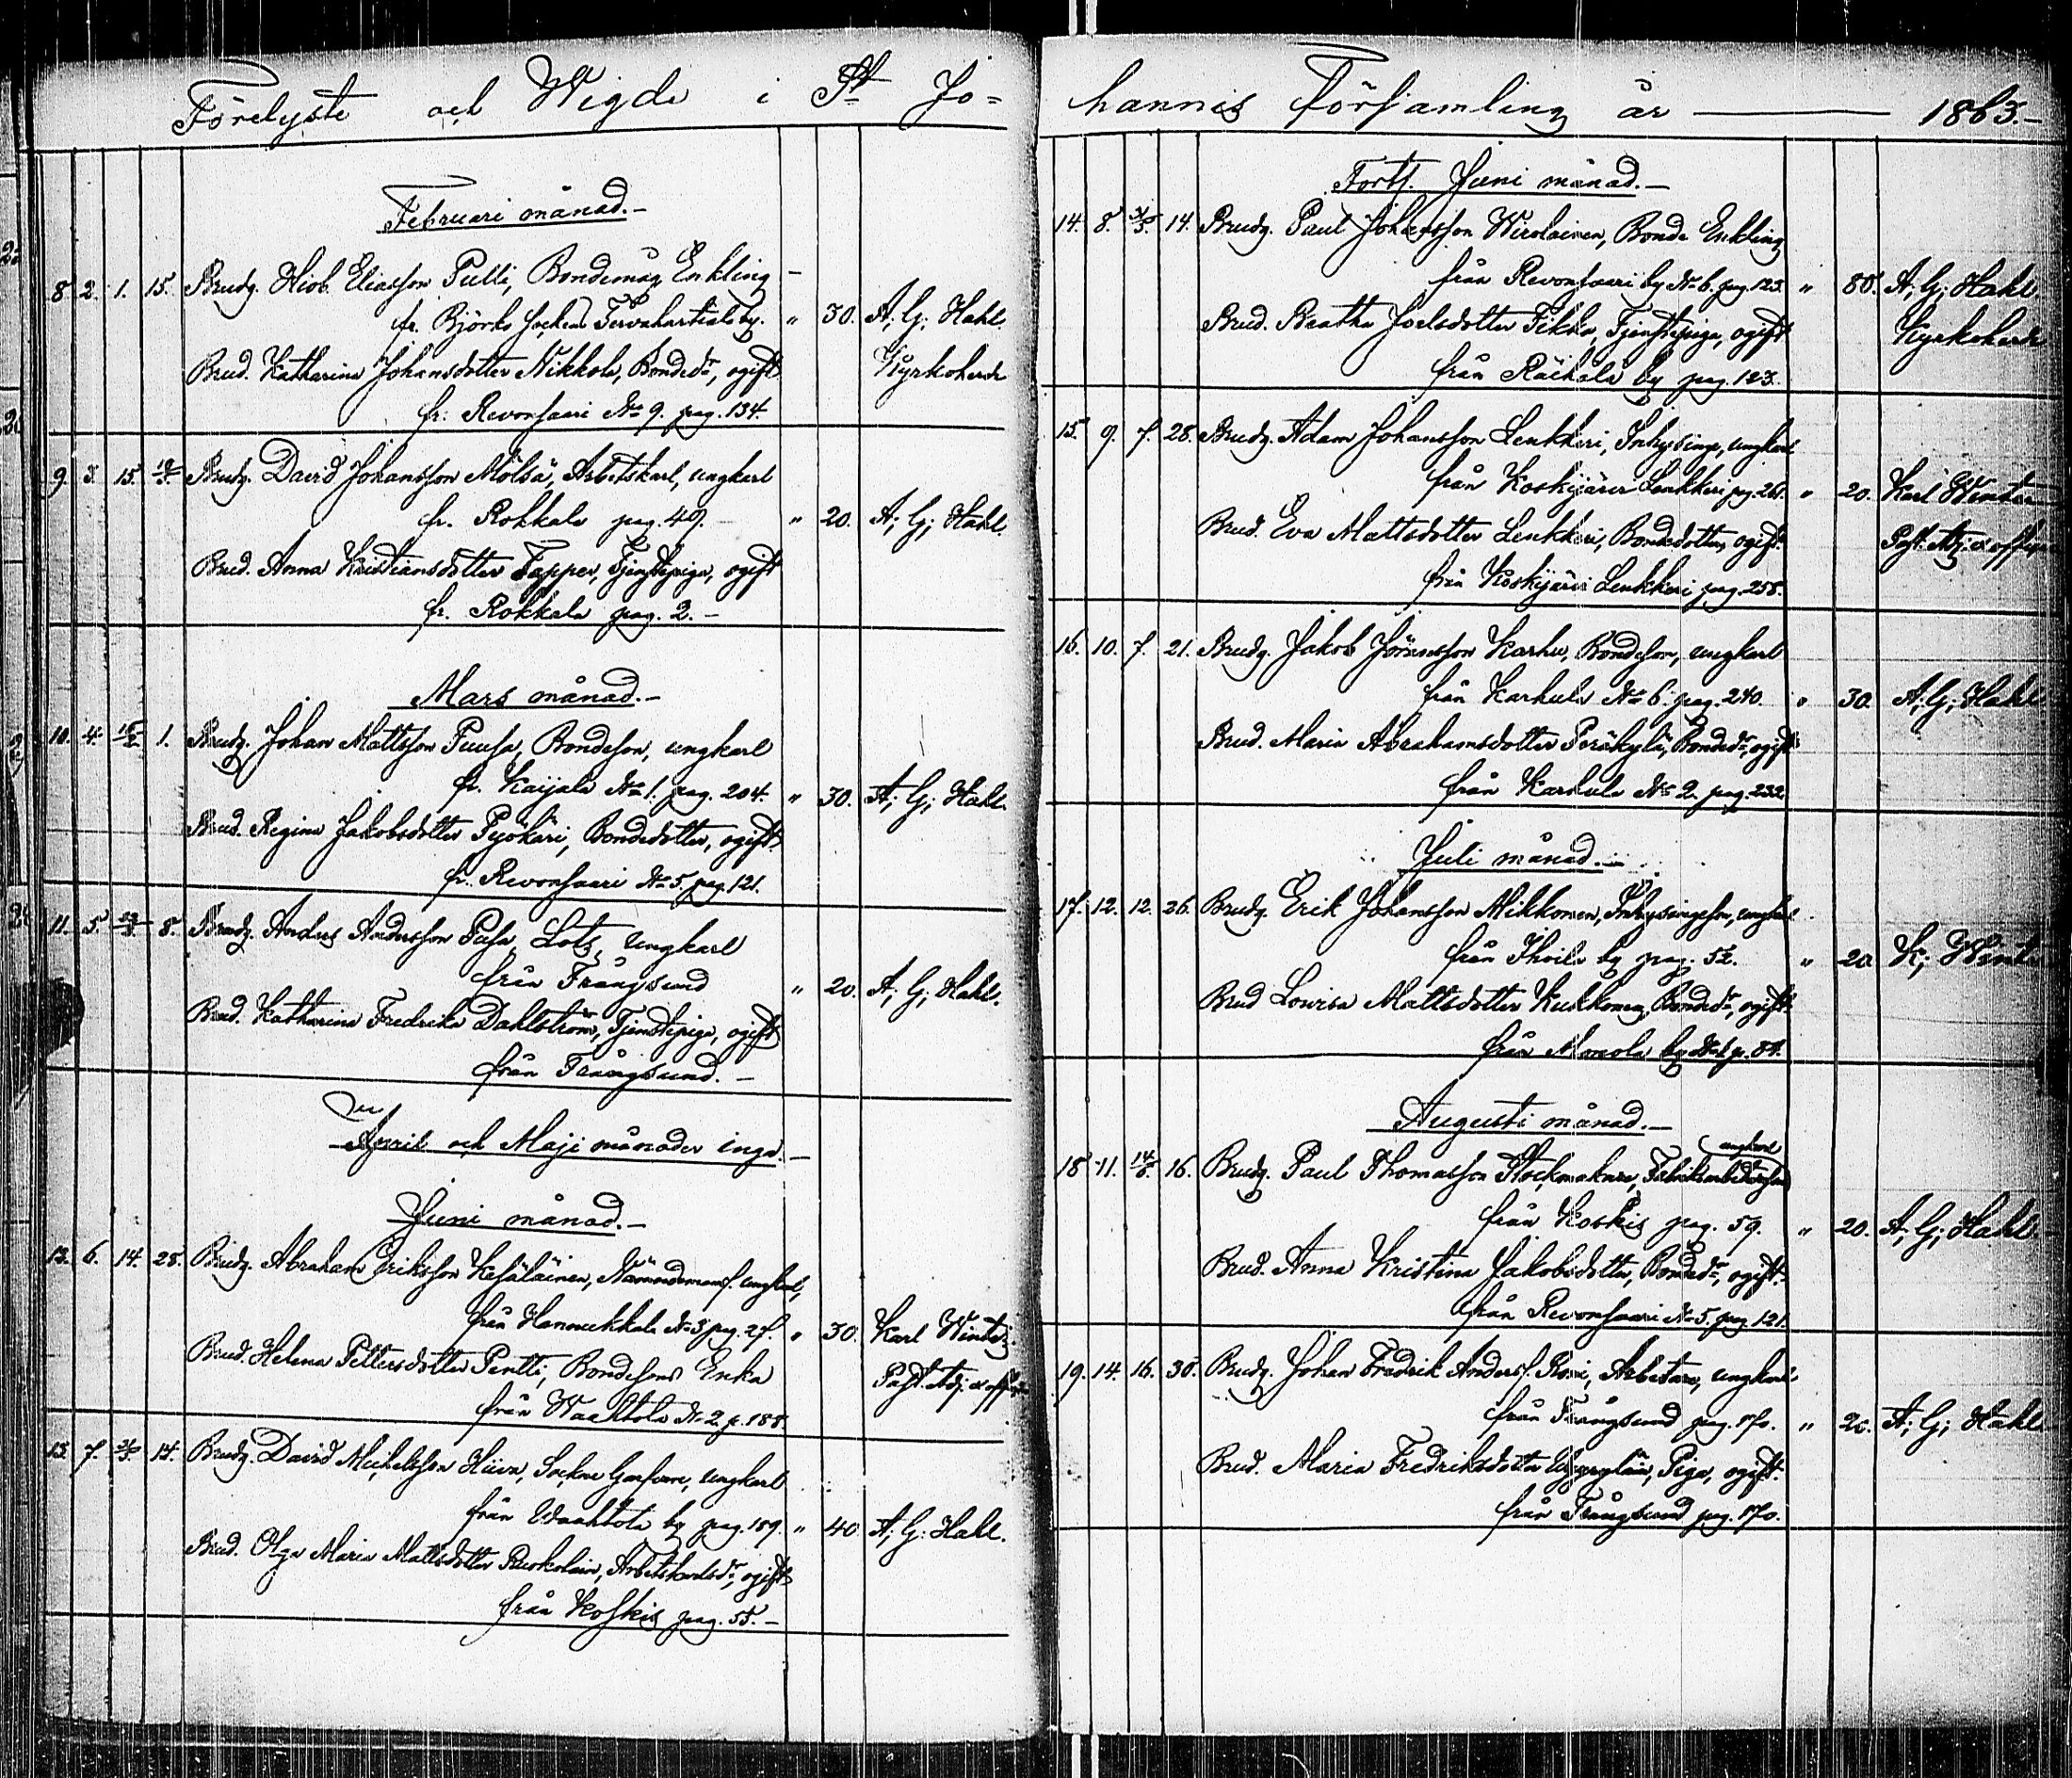 Förelyste och Wigde i St Jo=
Februari månad.-
8 2. 1. 15. Brudg. Hiob Eliasson Pulli, Bondemåg, Enkling -
fr. Björkö socken Tervahartiala by. " 30. A; G; Hahl.
Kyrkoherde
Brud. Katharina Johansdotter Nikkola, Bonded:r, ogift
fr: Revonsaari No 9. pag. 134.
9. 3. 15. Brudg. David Johansson Mölsä, Arbetskarl, ungkarl
fr. Rokkala pag. 49. " 20. A; G; Hahl.
Brud. Anna Kristiansdotter Tapper, Tjenstepiga, ogift
fr. Rokkala pag. 2.-
Mars månad.-
10. 4. 15/2. 1. Brudg. Johan Mattsson Puusa, Bondeson, ungkarl
fr. Kaijala No 1. pag. 204. " 30. A; G; Hahl.
Brud. Regina Jakobsdotter Pyökäri, Bondedotter, ogift
fr. Revonsaari No 5. pag. 121.
11. 5. 8. Brudg. Anders Andersson Pusa, Lots, ungkarl
från Trångsund " 20. A; G; Hahl.
Brud. Katharina Fredrika Dahlström, Tjenstepiga, ogift
från Trångsund.-
April och Maji månader inga.-
Juni månad.-
12. 6. 14. 28. Brudg. Abraham Eriksson Kesäläinen, Nämndemansf. ungkarl,
från Hannukkala No 3 pag. 27. " 30. Karl Winter.
Past. Adj. ex off.
Brud. Helena Pettersdotter Pentti, Bondesons Enka
från Waahtola No 2 p. 188.
13. 7. 31/5. 14. Brudg. David Michelsson Hiiva, Sockne Garfvare, ungkarl
från Waahtola by pag. 189. " 40 A; G; Hahl.
Brud. Olga Maria Mattsdotter Ruokolain, Arbetskarlsd:r, ogift
från Koskis pag. 55.-
hannis Församling år — 1863.-
Forts. Juni månad.-
14. 8. 31/5. 14. Brudg. Paul Johansson Wirolainen, Bonde Enkling
från Revonsaari by No 6. pag. 123. " 80. A; G; Hahl.
Kyrkoherde
Brud. Beatha Joelsdotter Pikka, Tjenstepiga, ogift
från Räihälä by pag. 123.
15. 9. 7. 28. Brudg. Adam Johansson Lenkkeri, Inhysing, ungkarl
från Koskijärvi Lenkkeri pag. 261. " 20. Karl Winter
Past. Adj. ex off.
Brud. Eva Mattsdotter Lenkkeri, Bondedotter, ogift.
från Koskijärvi Lenkkeri pag. 258.
16. 10. 7. 21. Brudg. Jakob Göransson Karhu, Bondeson, ungkarl
från Karhula No 6. pag. 240. " 30. A; G; Hahl
Brud. Maria Abrahamsdotter Peräkylä, Bonded:r, ogift
från Karhula No 2 pag. 232.
Juli månad.-
17. 12. 12. 26. Brudg. Erik Johansson Mikkonen, Inhysingeson, ungkarl
från Ihoila by pag. 52. " 20. K; Winter
Brud Lovisa Mattsdotter Kukkonen, Bonded:r, ogift.
från Monola by p. 84.
Augusti månad.-
ungkarl
18 11. 14/6. 16. Brudg. Paul Thomasson Stockmakare, Fabriksarbetareson
från Koskis pag. 59. " 20. A; G; Hahl.
Brud. Anna Kristina Jakobsdotter, Bonded:r, ogift.
från Revonsaari No 5. pag. 121.
19. 14. 16. 30. Brudg. Johan Fredrik Anderss. Roini, Arbetare, ungkarl
från Trångsund pag. 170. " 20. A; G; Hahl
Brud. Maria Fredriksdotter Piga, ogift.
från Trångsund pag. 170.